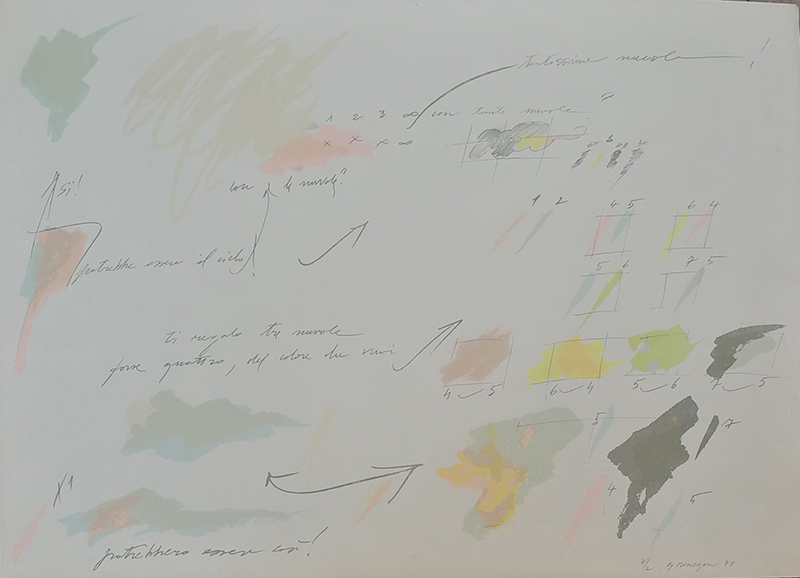 tantissime nuvole !
1 2 3 ∞ con tante nuvole ?
x x x ∞
3
Si!
con le nuvole?
1 2 4 5 6 4
potrebbe essere il cielo!
5 6 7 5
ti regalo tre nuvole
forse quattro, del colore che vuoi
4 5 6 4 5 6 7 5
5 7
X1
4 5
potrebbero essere così!